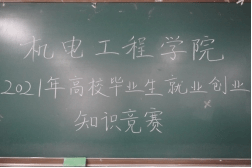 机电工程学院
2021年高校毕业生就业创业
知识竞赛